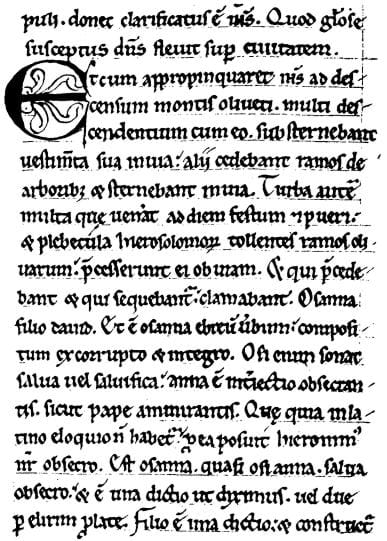 puli. donec clarificatus ē ihs. Quod gl'ose
susceptus dns fleuit sup ciuitatem.
Et cum appropinquaret ihs ad des-
censum montis oliueti. multi des-
cendentium cum eo. substernebant
uestimta sua in uia. alij cedebant ramos de
arborib; & sternebant in uia. Turba autē
multa que uenāt ad diem festum & pueri.
& plebecula hierosolimor tollentes ramos oli
uarum. pcesserunt ei obuiam. Et qui pcede-
bant & qui sequebant. clamabant. Osanna
filio dauid. Et ē osanna ebreū ubum. composi-
tum ex corrupto & integro. Osi enim sonat
salua uel saluifica. anna ē intiectio obsecran-
tis. sicut pape ammirantis. Quę quia in la-
tino eloquio n habet. posuit hieronim
nr obsecro. Est osanna. quasi osi anna. salua
obsecro. & ē una dictio ut diximus. uel due
p elisim plate. Filio ē una dictio. & construct